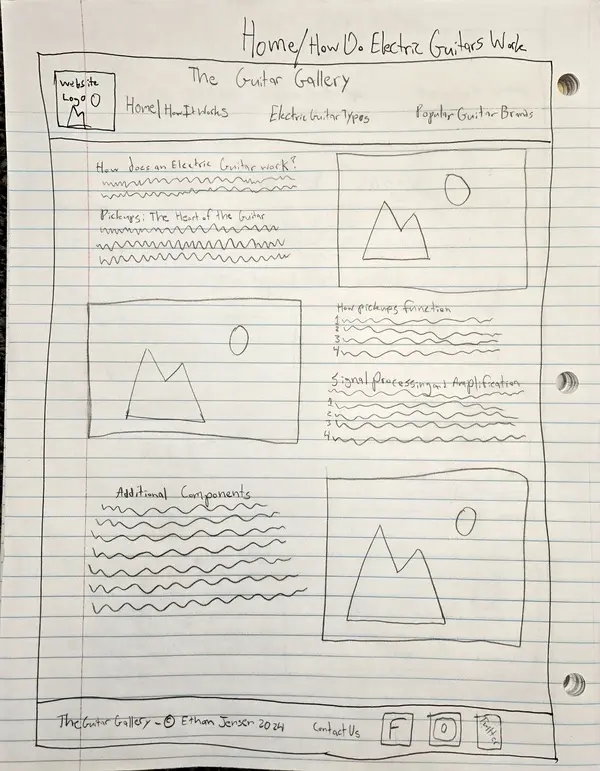 Home/How Do Electric Guitars Work
The Guitar Gallery
Website
Logo
Home/How It Works
Electric Guitar Types
Popular Guitar Brands
How does an Electric Guitar work?
Pickups: The Heart of the Guitar
How pickups function
1
2
3
4
Signal Processing and Amplification
1
2
3
4
Additional Components
The Guitar Gallery - © Ethan Jensen 2024
Contact Us
F
Twitter